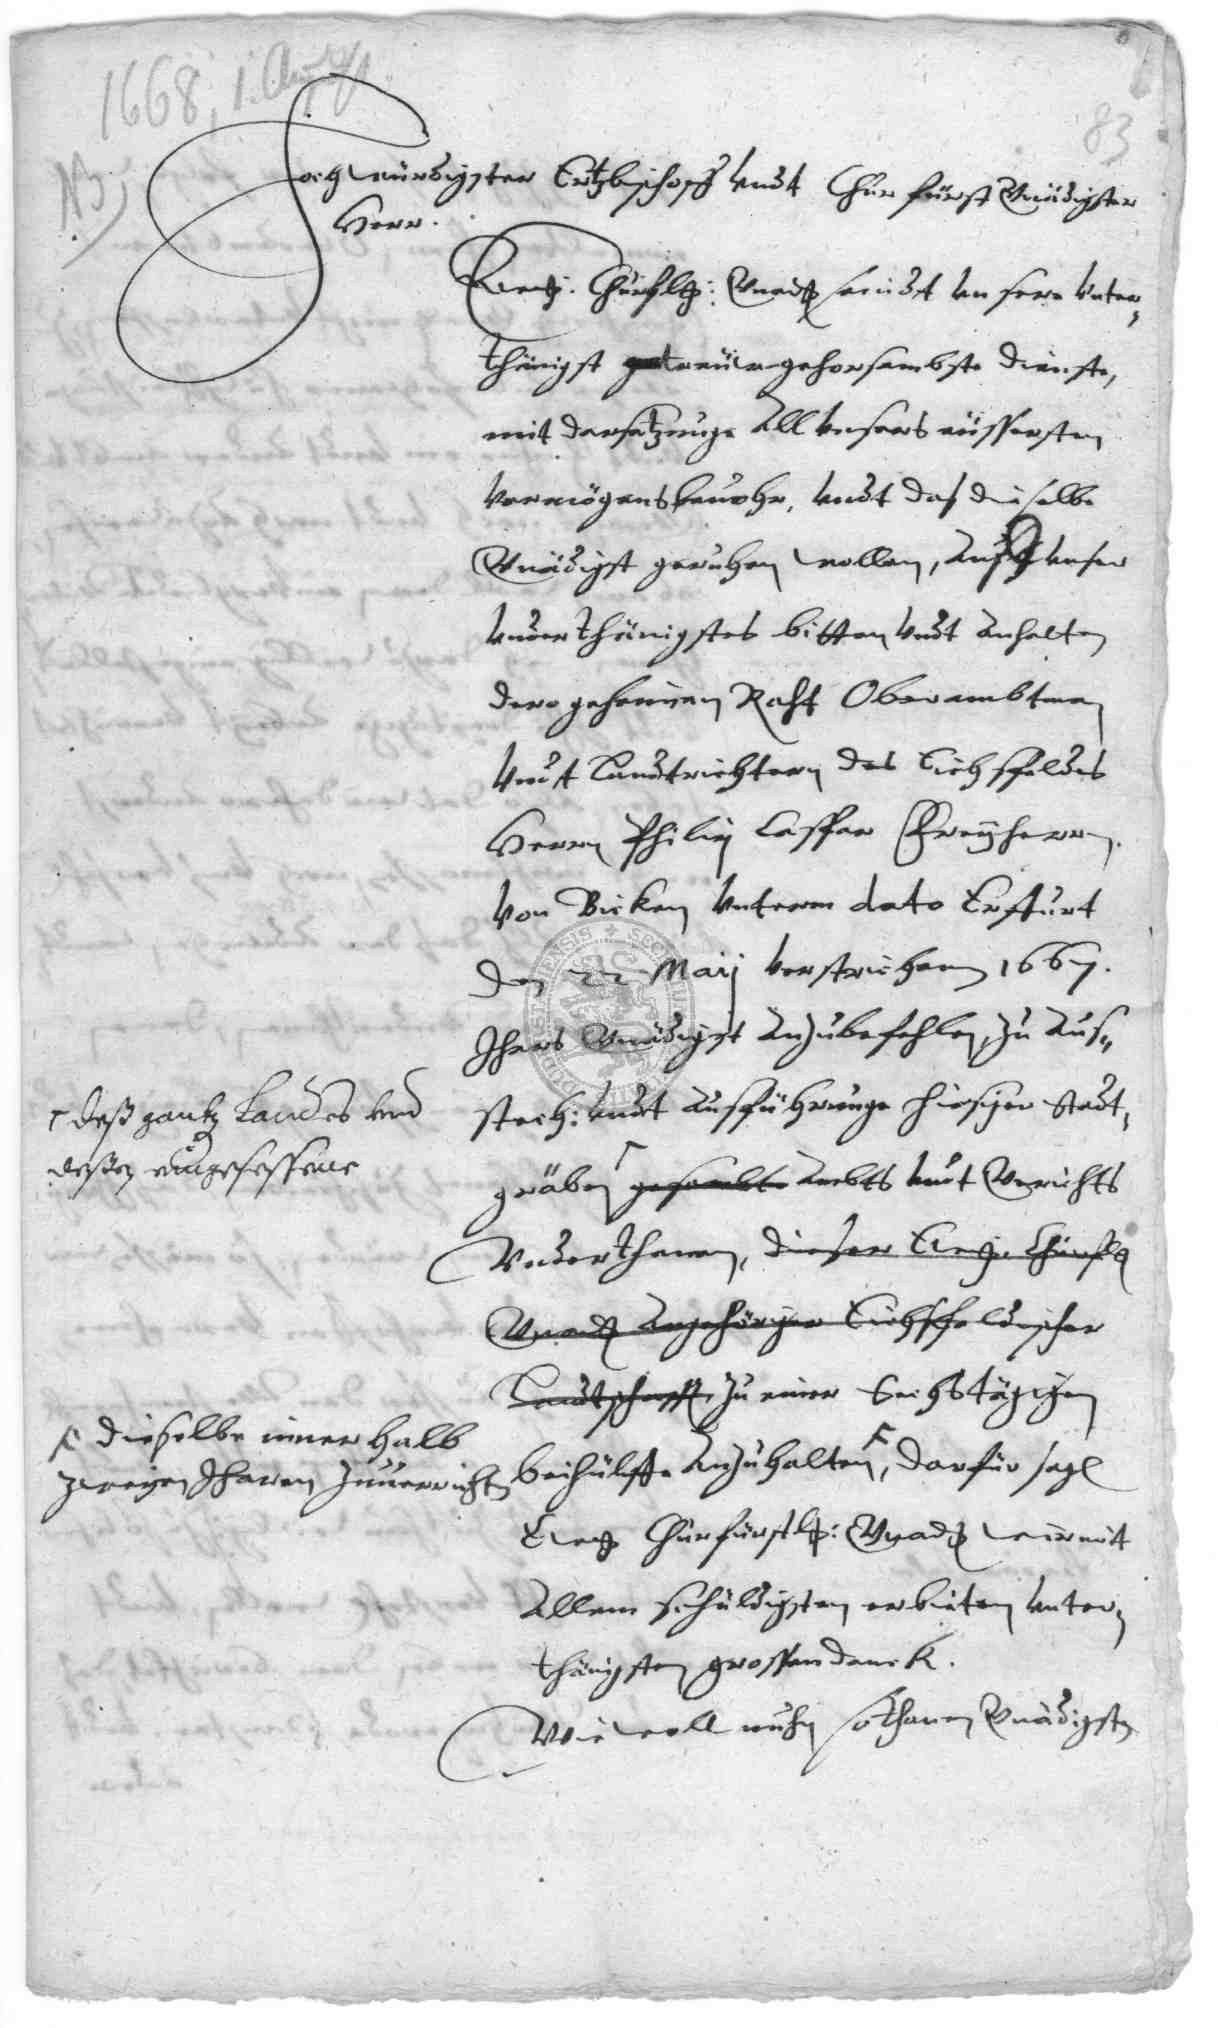 1668, 1. Aug.
83
NB
Hochwürdigster Ertzbischoff undt Churfürst Gnädigster
Herr.
Ewer Churfl: Gnad: seindt unsere unter-
thänigst getreüw-gehorsambste dienste,
mit darsatzunge all unsers eüssersten
vermögens bevohr, undt daß dieselbe
Gnädigst geruhen wollen, auff unser
underthänigstes bitten undt anhalten
dero geheimen Raht Oberambtman
undt Landtrichtern des Eichsfeldes
Herrn Philip Caspar Freyherrn
von Bicken unterm dato Erffurt
den 22 Maij verstrichenen 1667.
Jhars Gnädigst anzubefehlen, zu auß-
stech: undt außführunge hiesiger Stadt-
gräben gesambte Ambts undt Gerichts
Underthanen, dieser Ewer Churfl
Gnad: angehöriger Eichsfeldischer
Landtschafft, zu einer Sechstägigen
beihülffe anzuhalten, darfür sagen
Ewer Churfürstl: Gnad: wir mit
allem schüldigsten erbieten unter-
thänigsten grossen danck.
Wiewoll nuhn sothanen Gnädigsten
deß gantz Landes und
deßen eingesessene
dieselbe innerhalb
zweyen Jharen zuverrichten